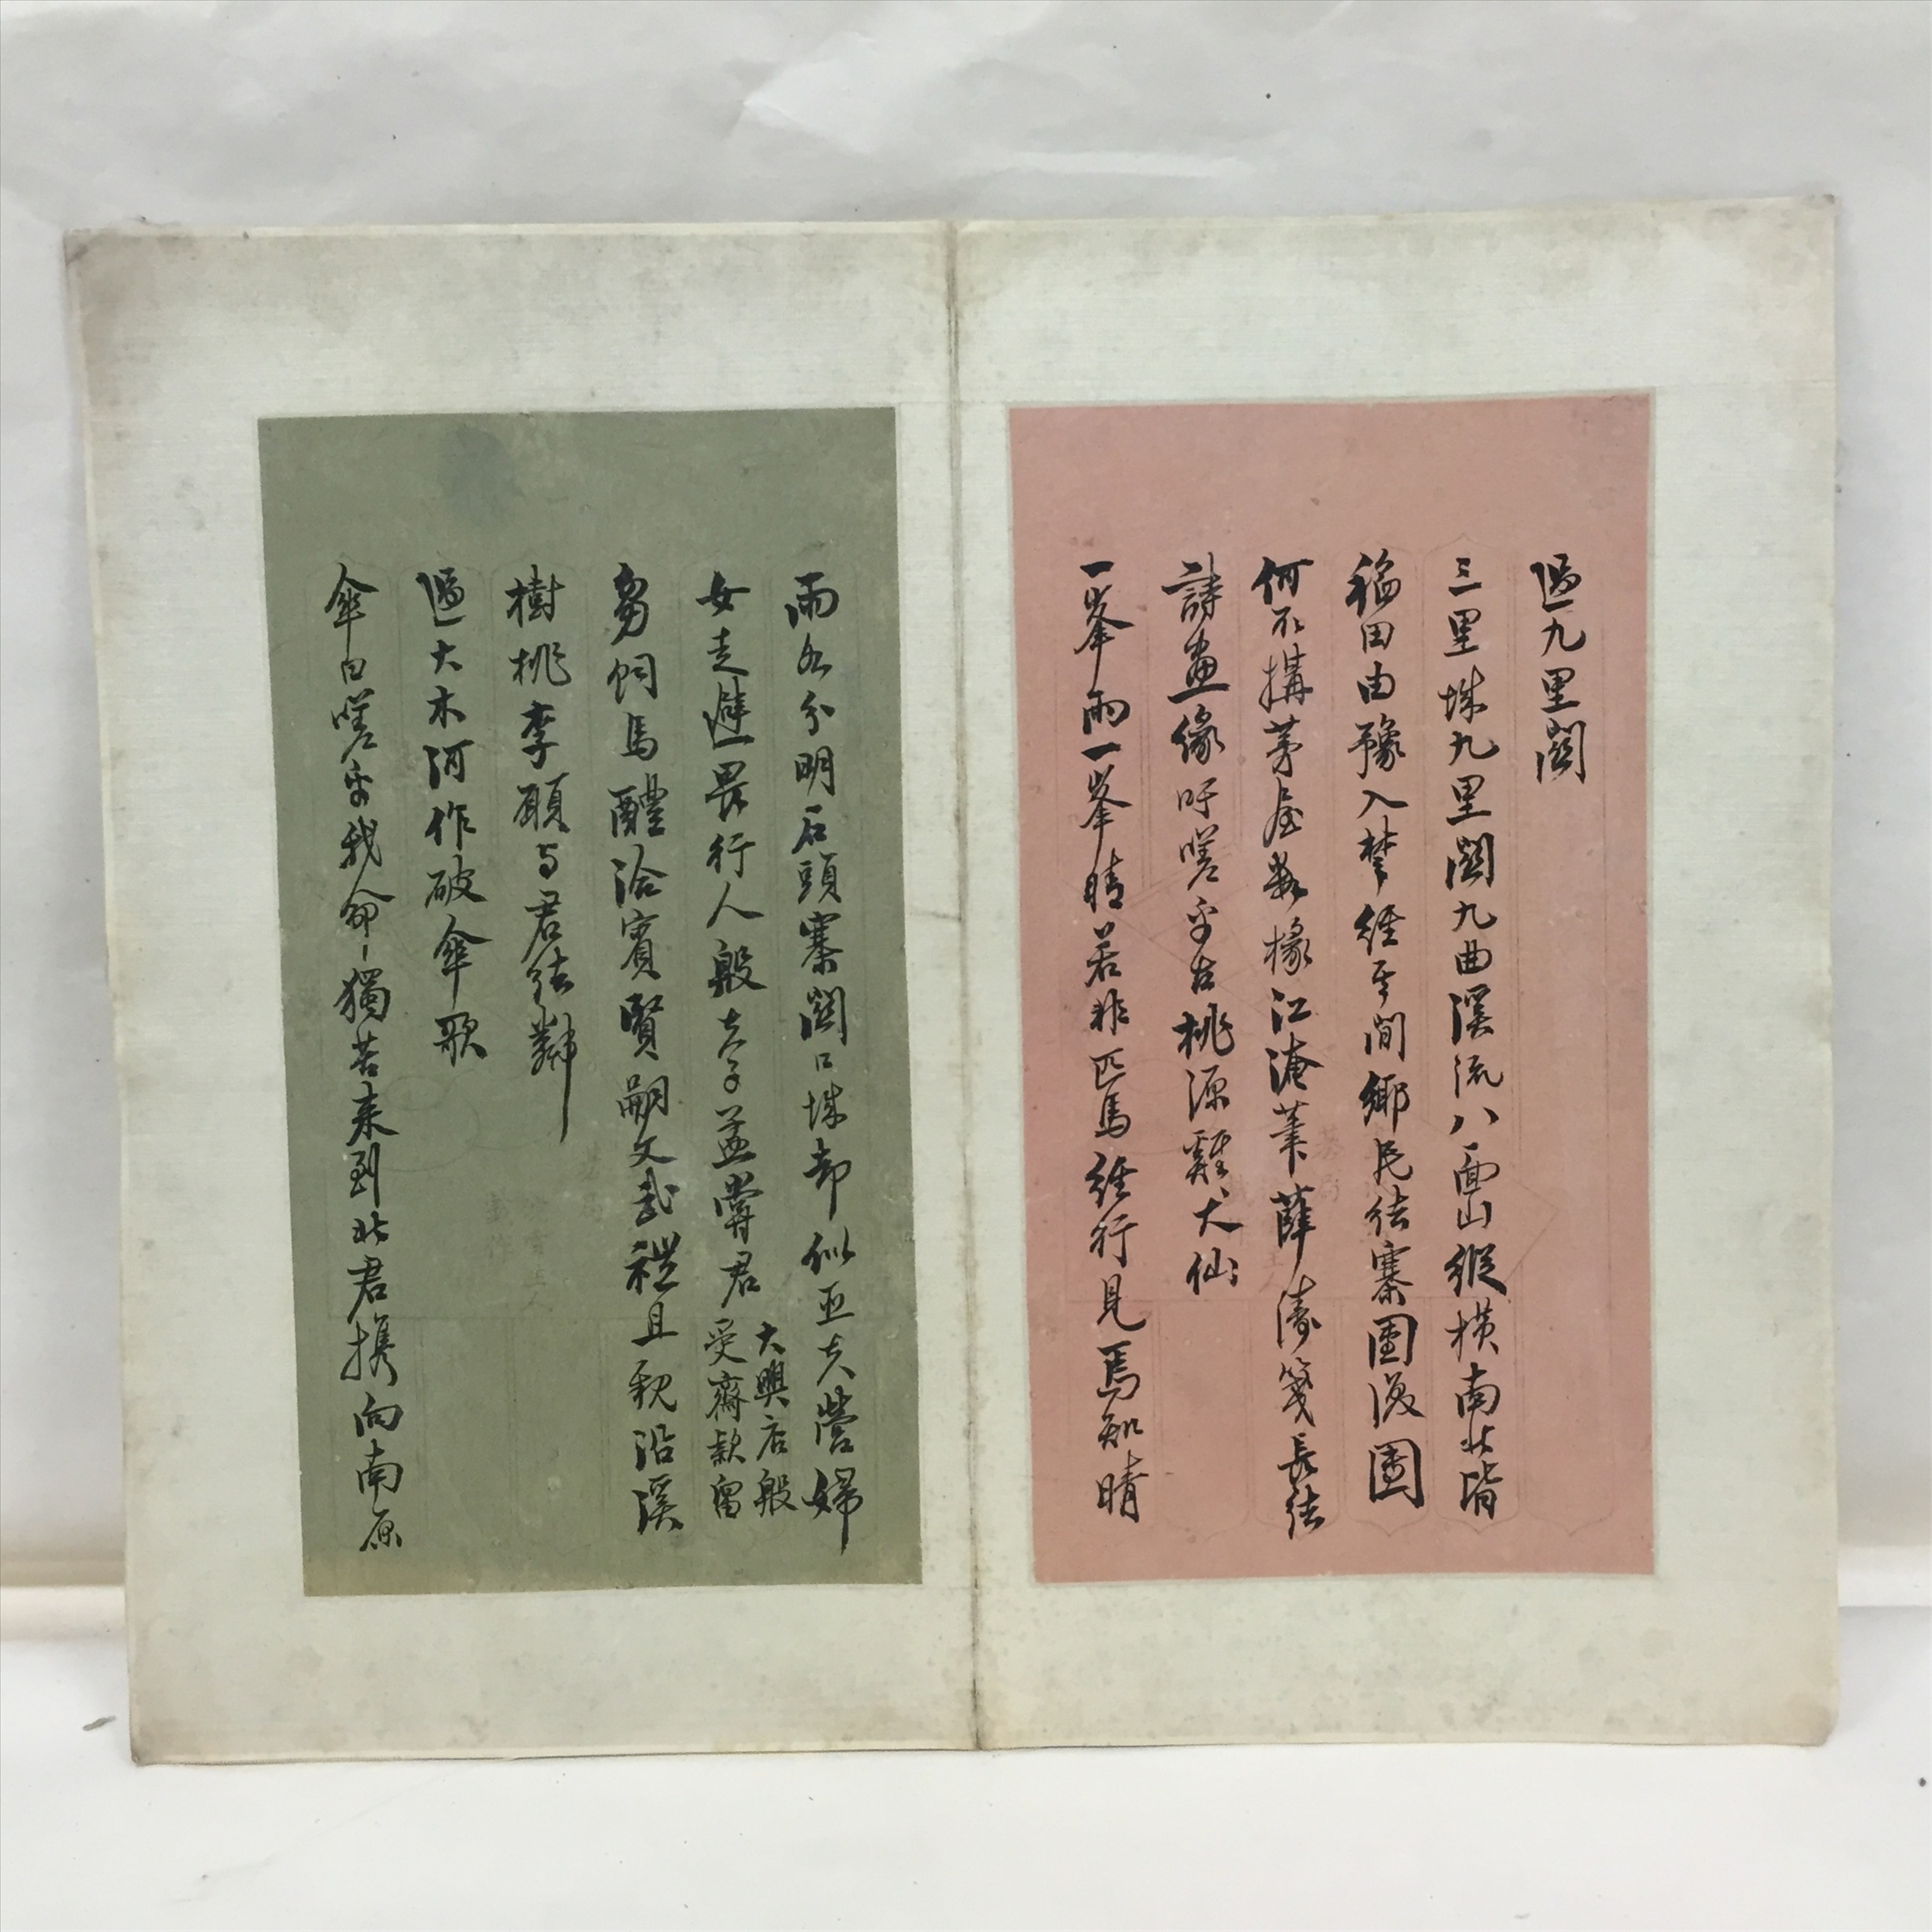 過九里關
三里城九里關九曲溪流八面山縱橫南北皆
稻田由豫入楚經其間鄉民結寨團復團
何不搆茅屋數椽江淹筆薛濤箋長結
詩畫緣吁嗟乎古桃源雞犬仙
一峯雨一峯晴若非匹馬經行見焉知晴
雨各分明石頭寨關口城却似亞夫營婦
女走避畏行人殷夫子孟嘗君
大興店殷
受齋款留
芻飼馬醴洽賓賢嗣文武禮且親沿溪
樹桃李願與君結鄰
過大木河作破傘歌
傘曰嗟乎我命〻獨苦來到北君攜向南原